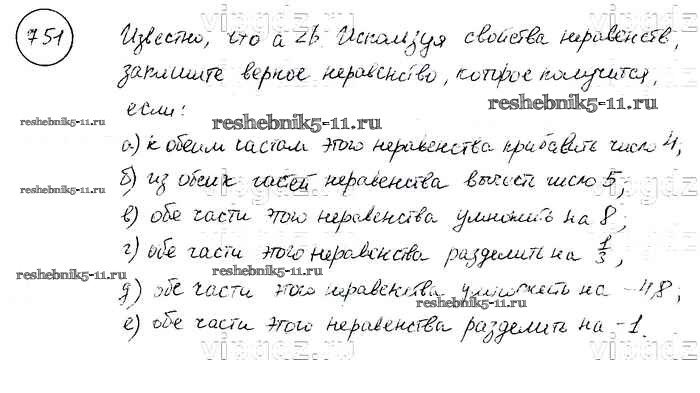 751
Известно, что a < b. Используя свойства неравенств,
запишите верное неравенство, которое получится,
если:
reshebnik5-11.ru
reshebnik5-11.ru
reshebnik5-11.ru
а) к обеим частям этого неравенства прибавить число 4;
б) из обеих частей неравенства вычесть число 5;
reshebnik5-11.ru
в) обе части этого неравенства умножить на 8;
г) обе части этого неравенства разделить на 1/3;
reshebnik5-11.ru
reshebnik5-11.ru
д) обе части этого неравенства умножить на -4,8;
reshebnik5-11.ru
е) обе части этого неравенства разделить на -1.
vipgdz
vipgdz
vipgdz
vipgdz